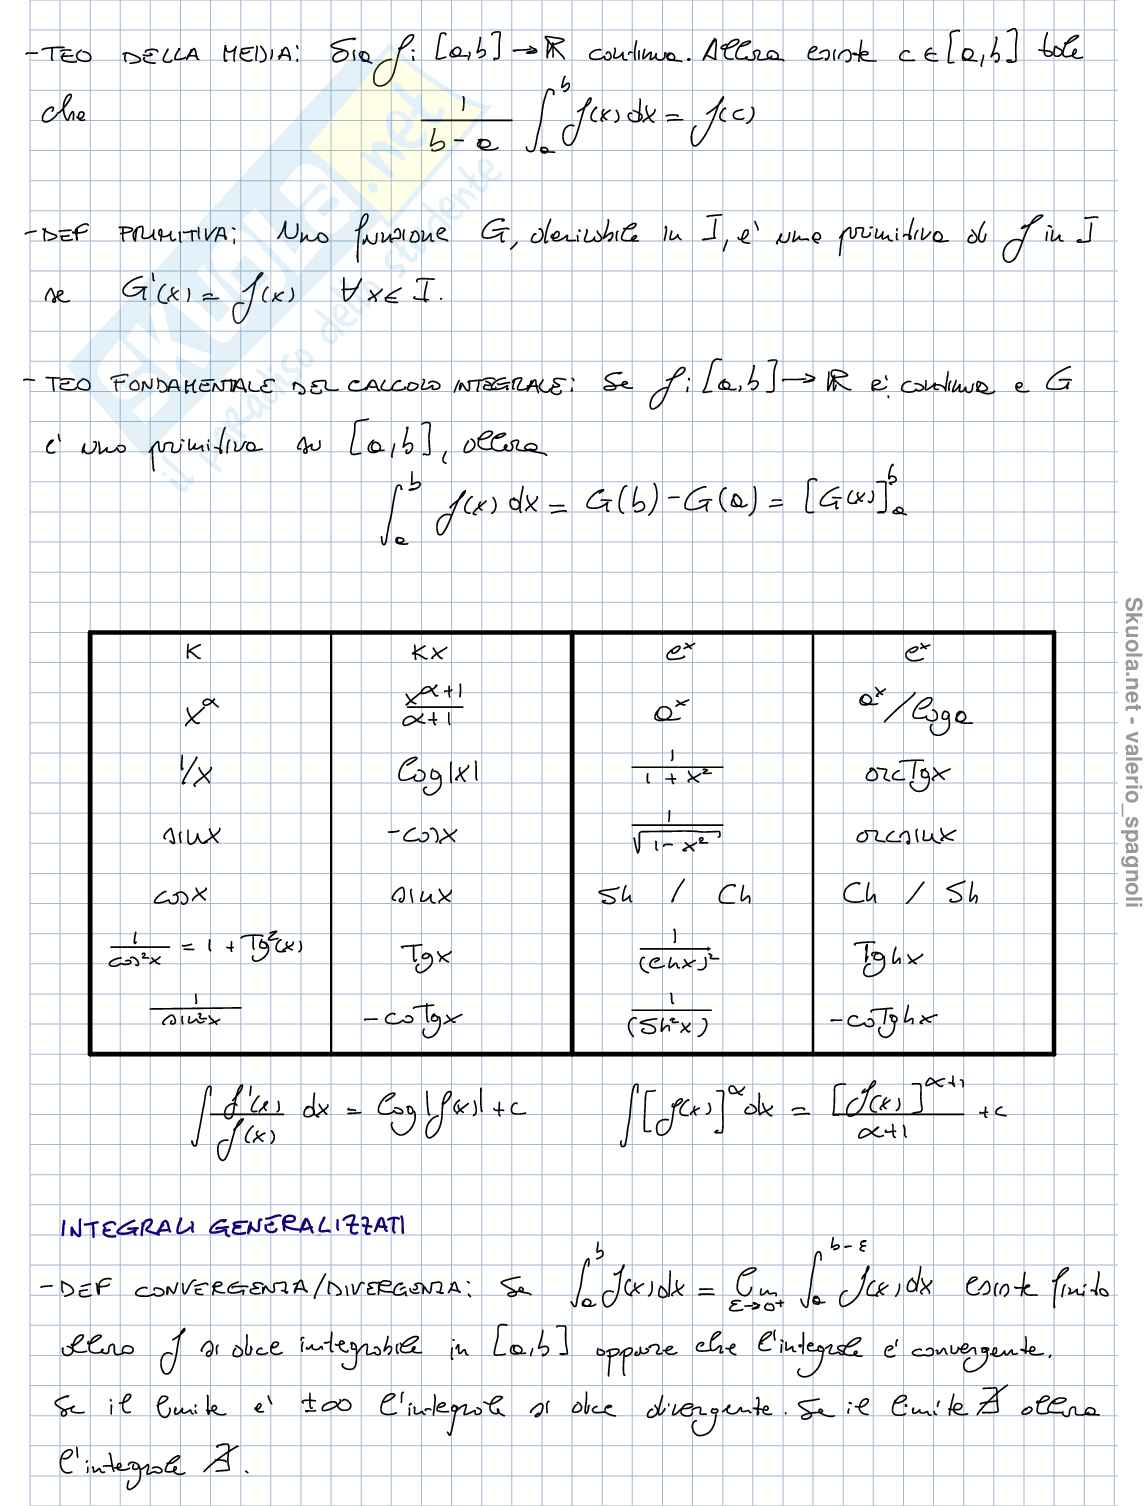 - TEO DELLA MEDIA: Sia f: [a,b] → ℝ continua. Allora esiste c ∈ [a,b] tale
che 1/(b-a) ∫_a^b f(x) dx = f(c)
- DEF PRIMITIVA: Una funzione G, derivabile in I, è una primitiva di f in I
se G'(x) = f(x) ∀x ∈ I.
- TEO FONDAMENTALE DEL CALCOLO INTEGRALE: Se f: [a,b] → ℝ è continua e G
è una primitiva su [a,b], allora
∫_a^b f(x) dx = G(b) - G(a) = [G(x)]_a^b
K Kx e^x e^x
x^α x^(α+1)/(α+1) a^x a^x/log a
1/x log|x| 1/(1+x²) arcTgx
sinx -cosx 1/√(1-x²) arcsinx
cosx sinx Sh / Ch Ch / Sh
1/cos²x = 1 + Tg²(x) Tgx 1/(chx)² Tghx
1/sin²x -coTgx 1/(Sh²x) -coTghx
∫ f'(x)/f(x) dx = log|f(x)| + c ∫ [f(x)]^α dx = [f(x)]^(α+1)/(α+1) + c
INTEGRALI GENERALIZZATI
- DEF CONVERGENZA/DIVERGENZA: Se ∫_a^b f(x) dx = lim_(ε→0⁺) ∫_a^(b-ε) f(x) dx esiste finito
allora f si dice integrabile in [a,b] oppure che l'integrale è convergente.
Se il limite è ±∞ l'integrale si dice divergente. Se il limite ∄ allora
l'integrale ∄.
SKUOLA.net
il paradiso dello studente
Skuola.net - valerio_spagnoli